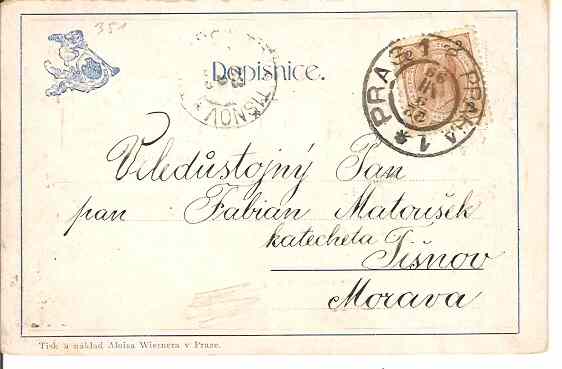 351
Dopisnice.
TIŠNOV
PRAG 1 PRAHA 1
Veledůstojný Pan
pan Fabian Matoušek
katecheta
Tišnov
Morava
Tisk a náklad Aloisa Wiesnera v Praze.